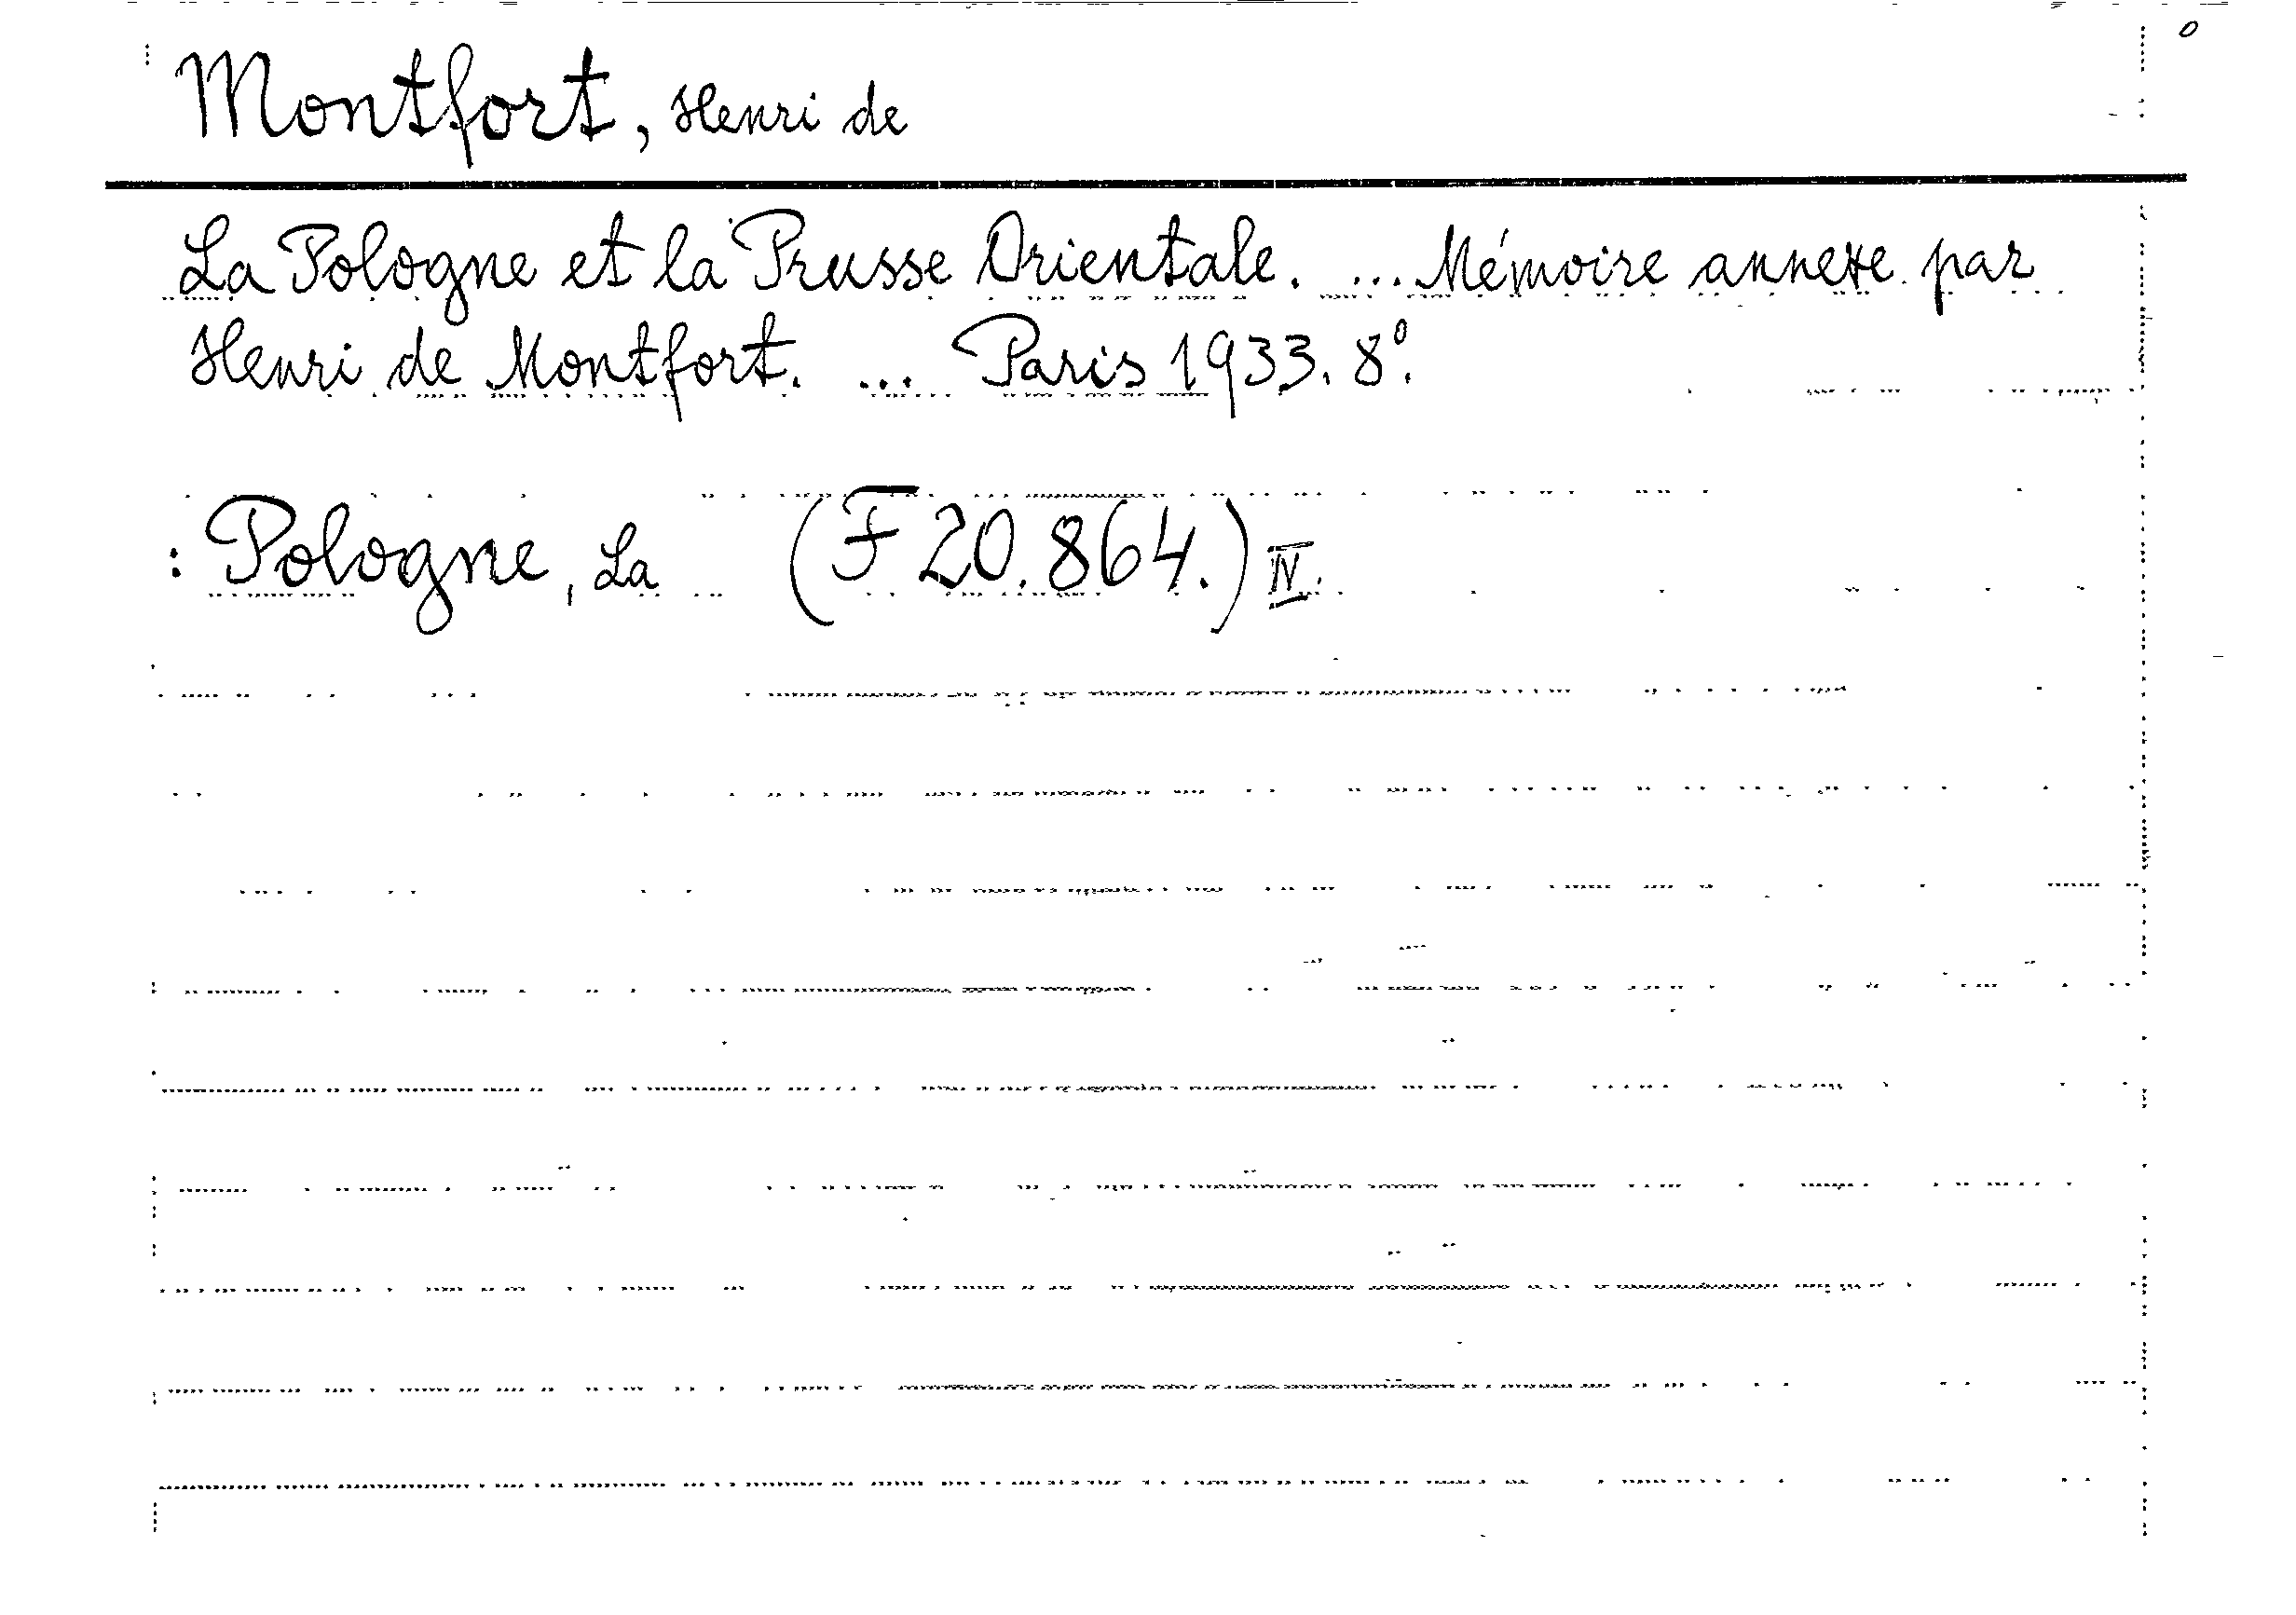 Montfort, Henri de
La Pologne et la Prusse Orientale. ... Mémoire annexe par
Henri de Montfort. ... Paris 1933. 8º.
: Pologne, La (F 20.864.) IV.